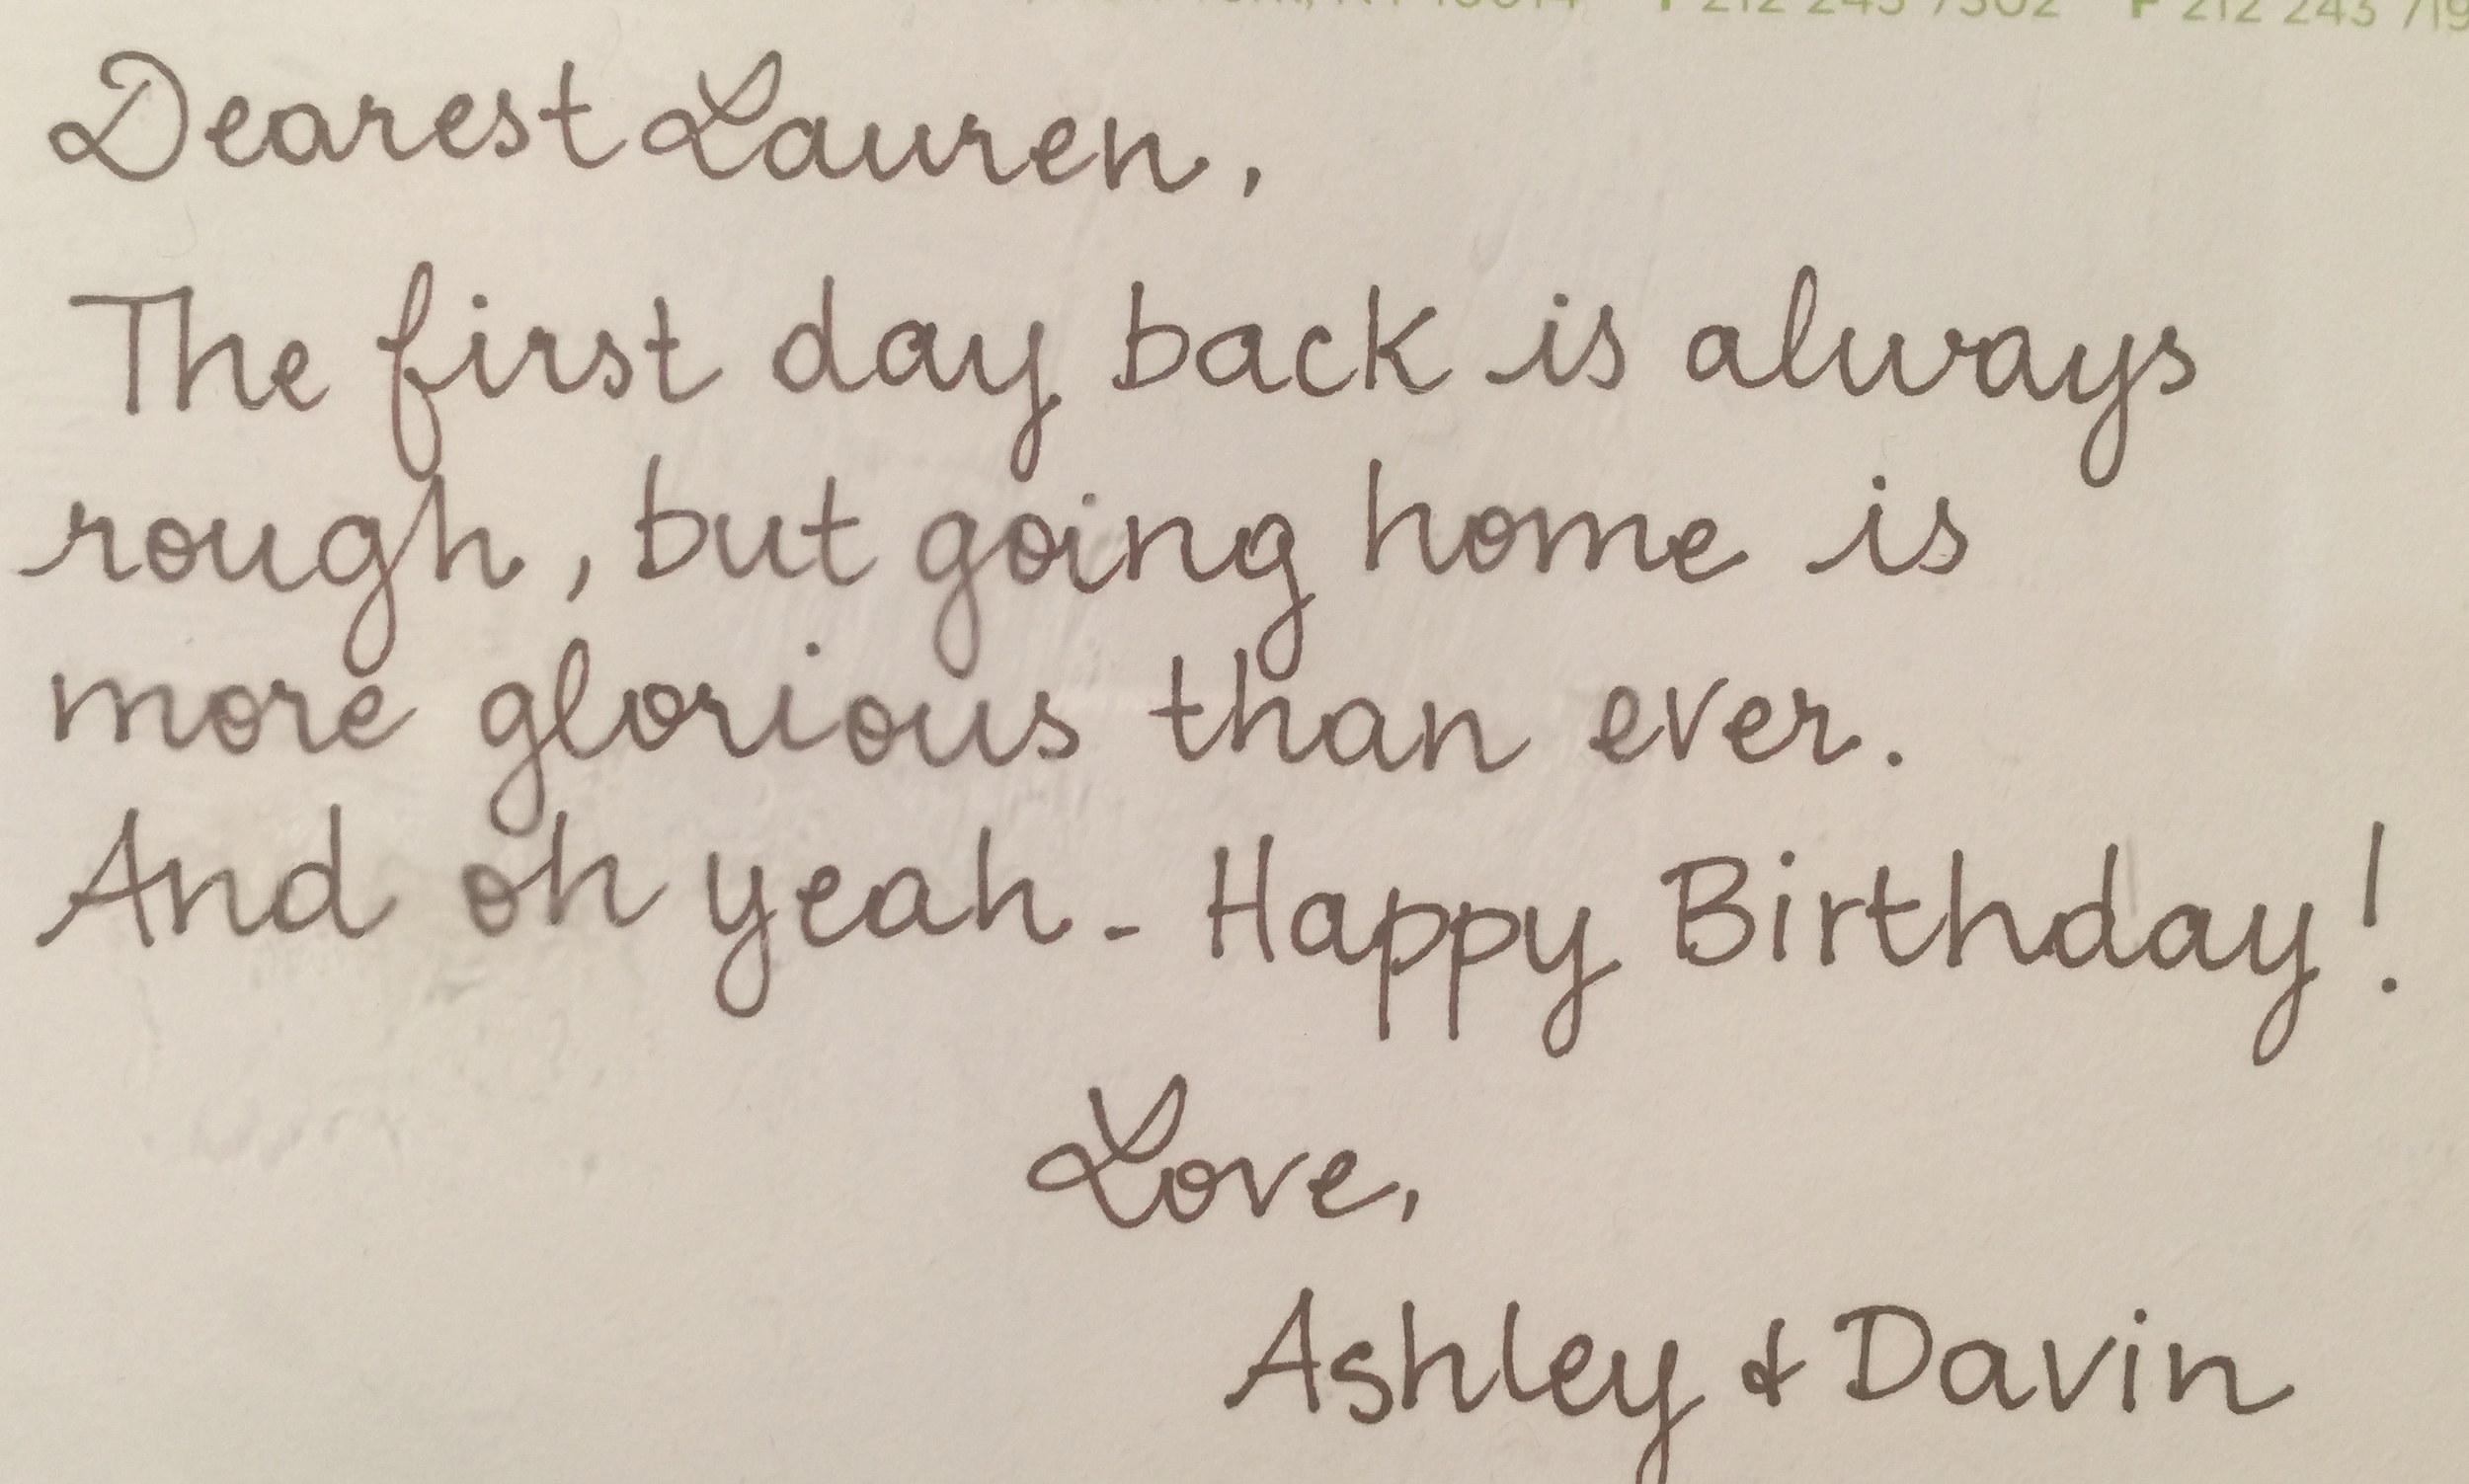 NY 10014 T 212 243 7302 F 212 243 719
Dearest Lauren,
The first day back is always
rough, but going home is
more glorious than ever.
And oh yeah - Happy Birthday!
Love,
Ashley & Davin